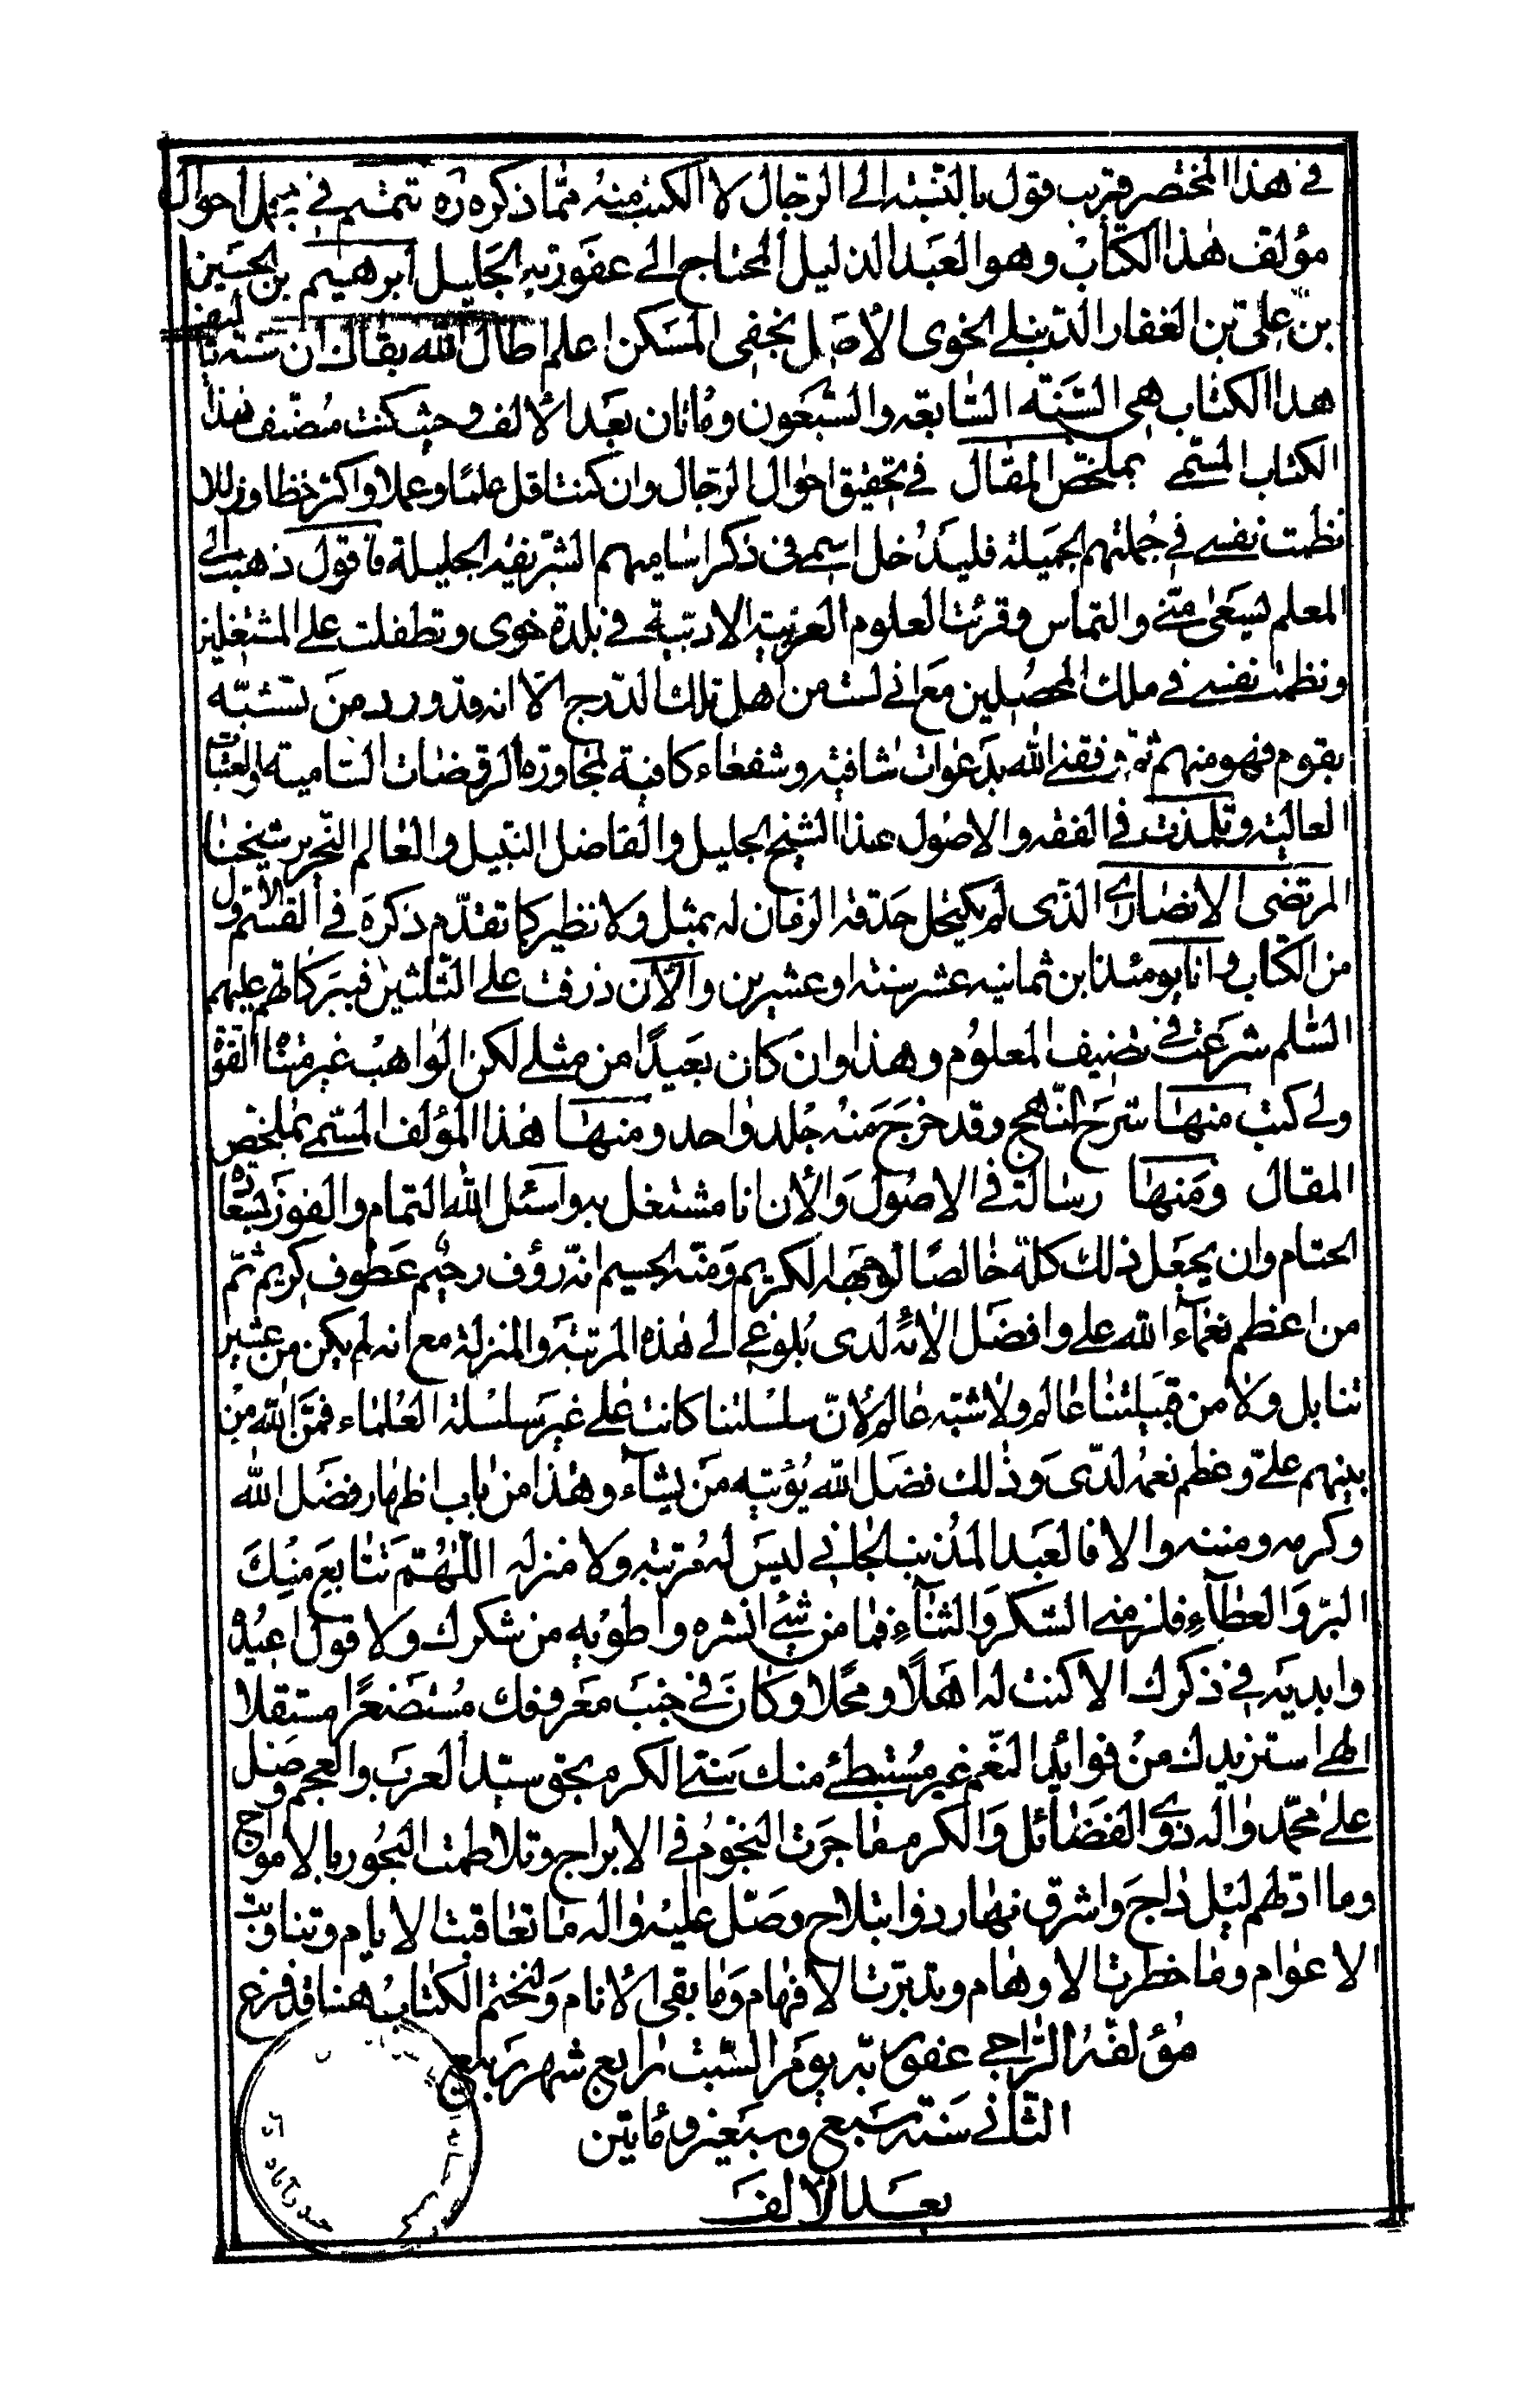 في هذا المختصر فترتب قول بالنسبة الى الرجال لا الكتب منه فما ذكره ره تتمته في مجمل احوال
مؤلف هذا الكتاب وهو العبد الذليل المحتاج الى عفو ربه الجليل ابرهيم بن الحسين
بن علي بن الغفار الدنبلي الخوى الاصل نجفى المسكن اعلم اطال الله بقاك ان سنة تاليف
هذا الكتاب هى السنة السابعه والسبعون ومأتان بعد الالف وحيث كنت مصنف هذا
الكتاب المسمى بملخص المقال في تحقيق احوال الرجال وان كنت اقل علما وعملا واكثر خطا وزللا
نظمت نفسى في جملتهم الجميلة فليدخل اسمى فى ذكر اساميهم الشريفه الجليلة فاقول ذهبت الى
المعلم بسعى منى والتماس وقرئت العلوم العربية الادبية في بلدة خوى وتطفلت على المشتغلين
ونظمت نفسى في ملك المحصلين مع انى لست من اهل تلك الدرج الا انه قد ورد من تشبه
بقوم فهو منهم ثم وفقنى الله بدعوات شافيه وشفعاء كافية لمجاورة الروضات السامية والعتبات
العالية وتلمذت في الفقه والاصول عند الشيخ الجليل والفاضل النبيل والعالم النحرير شيخنا
المرتضى الانصارى الذى لم يكتحل حدقة الزمان له بمثل ولا نظير كما تقدم ذكره في القسم الاول
من الكتاب وانا يومئذ ابن ثمانيه عشر سنة او عشرين والآن ذرفت على الثلثين فببركاتهم عليهم
السلم شرعت في تصنيف المعلوم وهذا وان كان بعيدا من مثلى لكن الواهب غير متناه القوة
ولى كتب منها شرح النافع وقد خرج منه جلد واحد ومنها هذا المؤلف المسمى بملخص
المقال ومنها رسالة في الاصول والآن انا مشتغل به واسئل الله التمام والفوز بسعادة
الختام وان يجعل ذلك كله خالصا لوجهه الكريم ومنه الجسيم انه رؤف رحيم عطوف كريم ثم
من اعظم نعماء الله على وافضل الائه لدى بلوغى الى هذه المرتبة والمنزلة مع انه لم يكن من عشير
تنابل ولا من قبيلتنا عالم ولا شبه عالم لان سلسلتنا كانت على غير سلسلة العلماء فمن الله من
بينهم على وعظم نعمه لدى وذلك فضل الله يؤتيه من يشاء وهذا من باب اظهار فضل الله
وكرمه ومننه والا فالعبد المذنب الجانى ليس له مرتبه ولا منزله اللهم تتابع منك
البر والعطاء فلزمنى الشكر والثناء فما من شئ انشره واطويه من شكرك ولا قول اعيده
وابديه في ذكرك الا كنت له اهلا ومحلا وكان في جنب معرفتك مستصغرا مستقلا
الهى استزيدك من فوائد النعم غير مستبطئ منك سنى الكرم بحق سيد العرب والعجم وصل
على محمد واله ذوى الفضائل والكرم ما جرت النجوم في الابراج وتلاطمت البحور بالامواج
وما ادلهم ليل داج واشرق نهار ذو ابتلاج وصل عليه واله ما تعاقبت الايام وتناوبت
الاعوام وما خطرت الاوهام وتدبرت الافهام وما بقى الانام ولنختم الكتاب هنا قد فرغ
مؤلفه الراجى عفو ربه يوم السبت رابع شهر ربيع
الثانى سنة سبع وسبعين ومأتين
بعد الالف